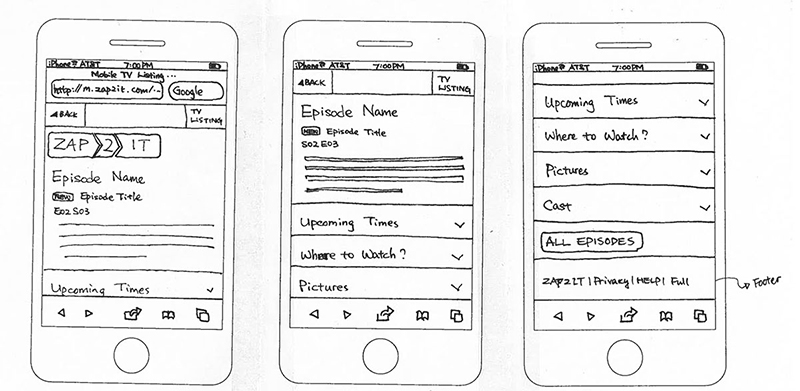 iPhone AT&T 7:00PM
Mobile TV Listing ...
http://m.zap2it.com/... Google
BACK TV LISTING
ZAP 2 IT
Episode Name
New Episode Title
E02 S03
Upcoming Times
iPhone AT&T 7:00PM
BACK TV LISTING
Episode Name
NEW Episode Title
S02 E03
Upcoming Times
Where to Watch?
Pictures
iPhone AT&T 7:00PM
Upcoming Times
Where to Watch?
Pictures
Cast
ALL EPISODES
ZAP2IT | Privacy | HELP | Full
Footer